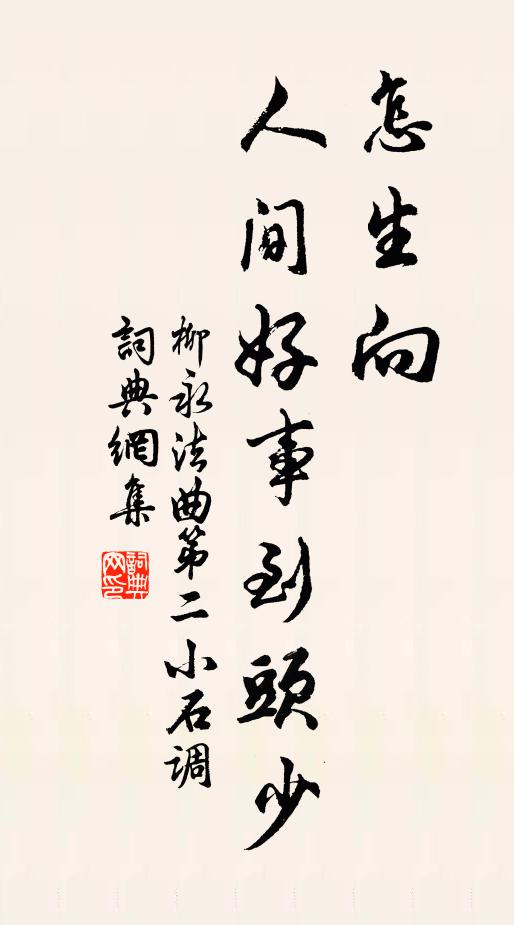 怎生向
人间好事到頭少
柳永法曲第二小石调
詞典網集
詞典网印